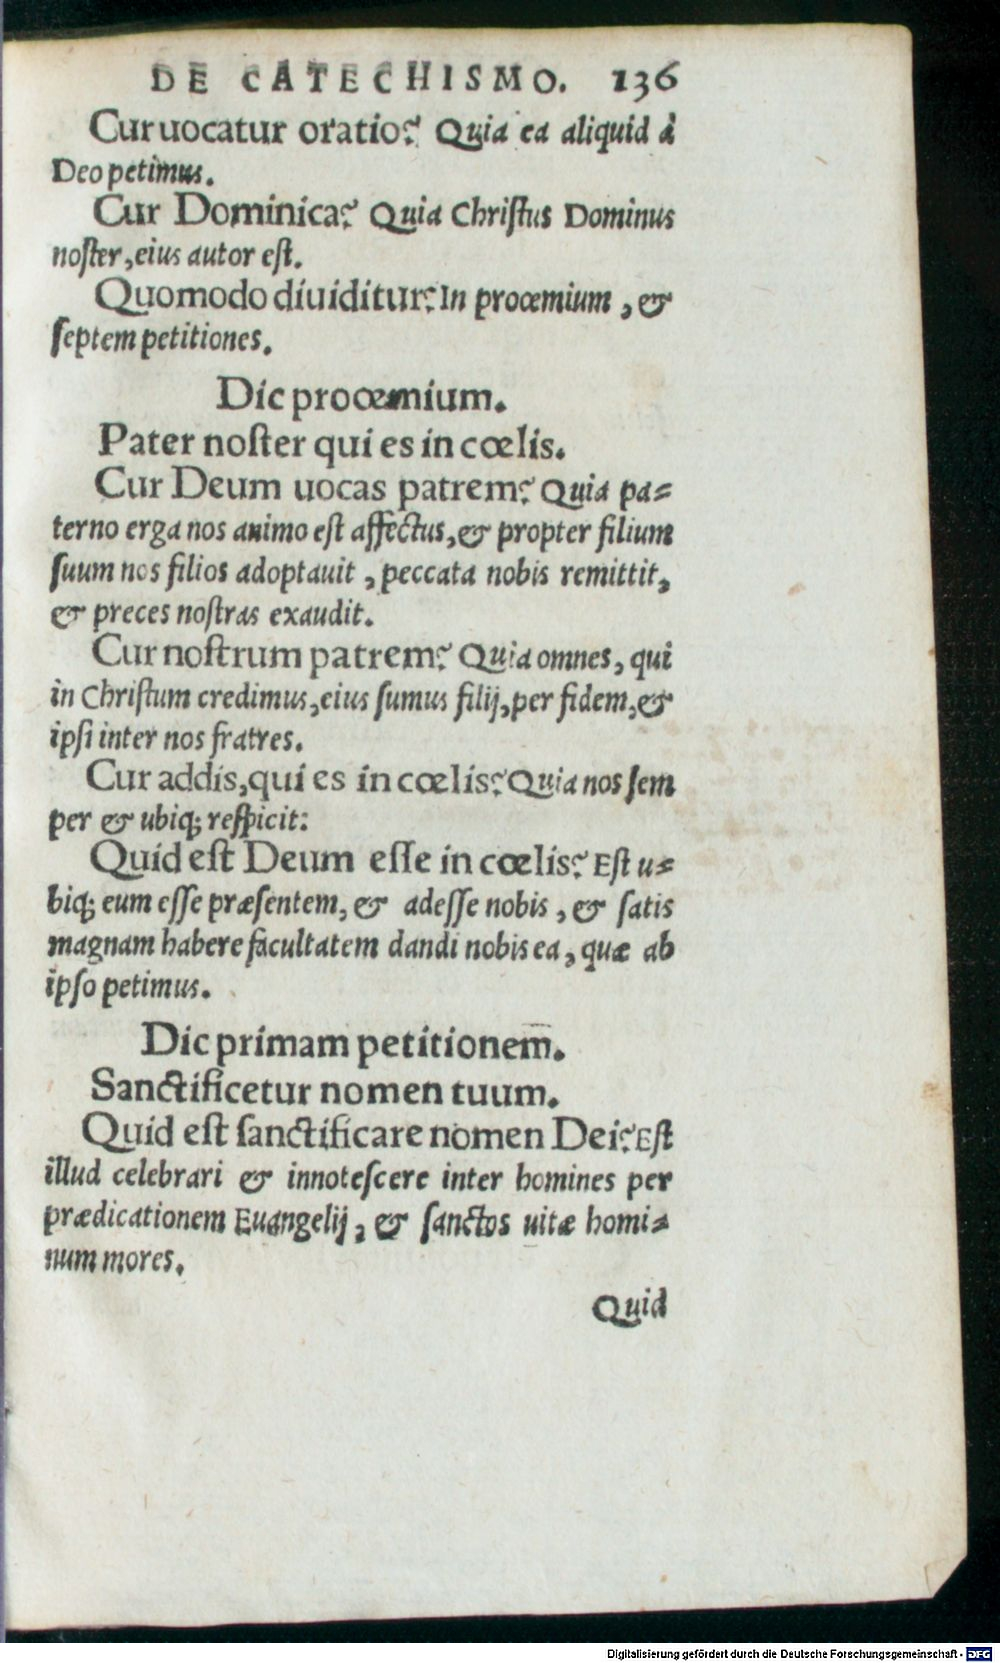 DE CATECHISMO. 136
Cur uocatur oratio? Quia ea aliquid à
Deo petimus.
Cur Dominica? Quia Chriſtus Dominus
noſter, eius autor eſt.
Quomodo diuiditur? In proœmium, &
ſeptem petitiones.
Dic proœmium.
Pater noſter qui es in cœlis.
Cur Deum uocas patrem? Quia pa-
terno erga nos animo eſt affectus, & propter filium
ſuum nos filios adoptauit, peccata nobis remittit,
& preces noſtras exaudit.
Cur noſtrum patrem? Quia omnes, qui
in Chriſtum credimus, eius ſumus filij, per fidem, &
ipſi inter nos fratres.
Cur addis, qui es in cœlis? Quia nos ſem
per & ubiq; reſpicit:
Quid eſt Deum eſſe in cœlis? Eſt u-
biq; eum eſſe præſentem, & adeſſe nobis, & ſatis
magnam habere facultatem dandi nobis ea, quæ ab
ipſo petimus.
Dic primam petitionem.
Sanctificetur nomen tuum.
Quid eſt ſanctificare nomen Dei? Eſt
illud celebrari & innoteſcere inter homines per
prædicationem Euangelij, & ſanctos uitæ homi-
num mores.
Quid
Digitalisierung gefördert durch die Deutsche Forschungsgemeinschaft - DFG